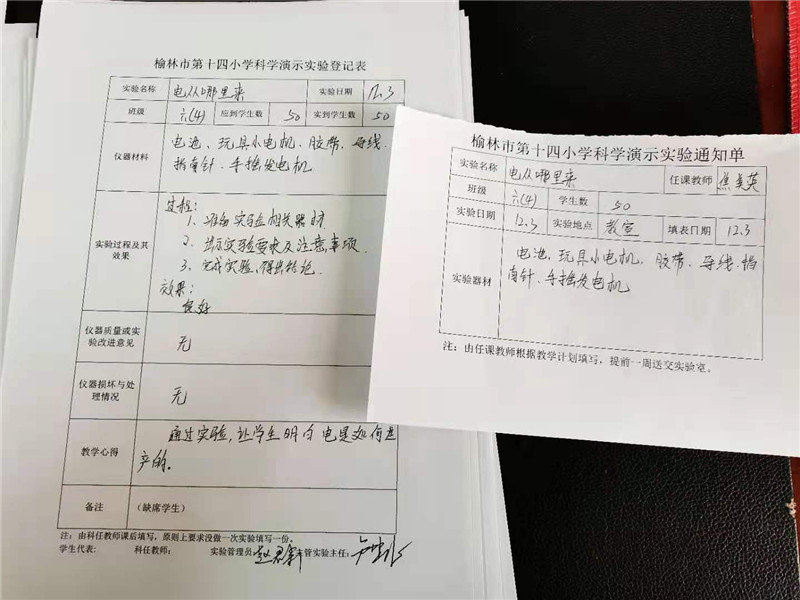 榆林市第十四小学科学演示实验登记表
实验名称 电从哪里来 实验日期 12.3
班级 六(4) 应到学生数 50 实到学生数 50
仪器材料 电池、玩具小电机、胶带、导线、
指南针、手摇发电机
实验过程及其效果
过程:
1、准备实验相关器材
2、提出实验要求及注意事项.
3、完成实验,得出结论.
效果:
很好
仪器质量或实验改进意见 无
仪器损坏与处理情况 无
教学心得 通过实验,让学生明白电是如何生
产的。
备注 (缺席学生)
注:由科任教师课后填写,原则上要求没做一次实验填写一份。
学生代表: 科任教师: 实验管理员: 主管实验主任:
榆林市第十四小学科学演示实验通知单
实验名称 电从哪里来 任课教师 焦美英
班级 六(4) 学生数 50
实验日期 12.3 实验地点 教室 填表日期 12.3
实验器材 电池、玩具小电机、胶带、导线、指
南针、手摇发电机
注:由任课教师根据教学计划填写,提前一周送交实验室。